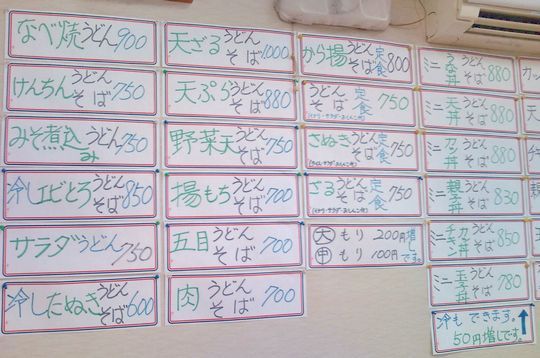 なべ焼うどん900
けんちんうどんそば750
みそ煮込うどん750
み
冷しエビとろうどんそば850
サラダうどん750
冷したぬきうどんそば600
天ざるうどんそば1000
天ぷらうどんそば880
野菜天うどんそば750
揚もちうどんそば700
五目うどんそば700
肉うどんそば700
から揚うどんそば定食800
うどんそば定食750
さぬきうどん定食750
ざるうどんそば定食750
大もり200円増
中もり100円です。
ミニ
丼うどんそば880
ミニ天丼うどんそば880
ミニカツ丼うどんそば880
ミニ親子丼うどんそば830
ミニチキンカツ丼うどんそば850
ミニ玉子丼うどんそば780
冷もできます。
50円増しです。